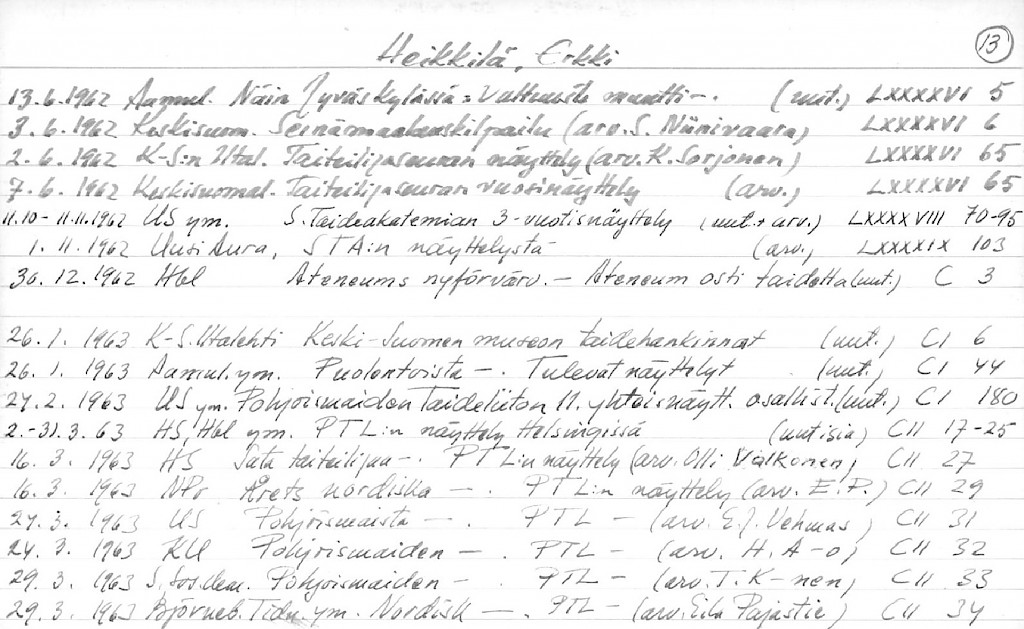 13
Heikkilä, Erkki
13.6.1962 Aamul. Näin Jyväskylässä = Valtuusto muutti -. (uut.) LXXXXVI 5
3.6.1962 Keskisuom. Seinämaalauskilpailu (arv. S. Niinivaara) LXXXXVI 6
2.6.1962 K-S:n Iltal. Taiteilijaseuran näyttely (arv. K. Sorjonen) LXXXXVI 65
7.6.1962 Keskisuomal. Taiteilijaseuran vuosinäyttely (arv.) LXXXXVI 65
11.10-11.11.1962 US ym. S. Taideakatemian 3-vuotisnäyttely (uut. + arv.) LXXXXVIII 70-95
1.11.1962 Uusi Aura, STA:n näyttelystä (arv.) LXXXXIX 103
30.12.1962 Hbl Ateneums nyförvärv. - Ateneum osti taidetta (uut.) C 3
26.1. 1963 K-S. Iltalehti Keski-Suomen museon taidehankinnat (uut.) CI 6
26.1. 1963 Aamul. ym. Puolentoista -. Tulevat näyttelyt (uut.) CI 44
27.2. 1963 US ym. Pohjoismaiden Taideliiton 11. yhteisnäytt. osallist. (uut.) CI 180
2.-31.3.63 HS, Hbl ym. PTL:n näyttely Helsingissä (uutisia) CII 17-25
16.3. 1963 HS Sata taiteilijaa -. PTL:n näyttely (arv. Olli Valkonen) CII 27
16.3. 1963 NPr Årets nordiska -. PTL:n näyttely (arv. E.P.) CII 29
24.3. 1963 US Pohjoismaista -. PTL - (arv. E.J. Vehmas) CII 31
24.3. 1963 KU Pohjoismaiden -. PTL - (arv. H. A-o) CII 32
29.3. 1963 S. Sos.dem. Pohjoismaiden -. PTL - (arv. T. K-nen) CII 33
29.3. 1963 Björneb. Tidn. ym. Nordisk -. PTL - (arv. Eila Pajastie) CII 34